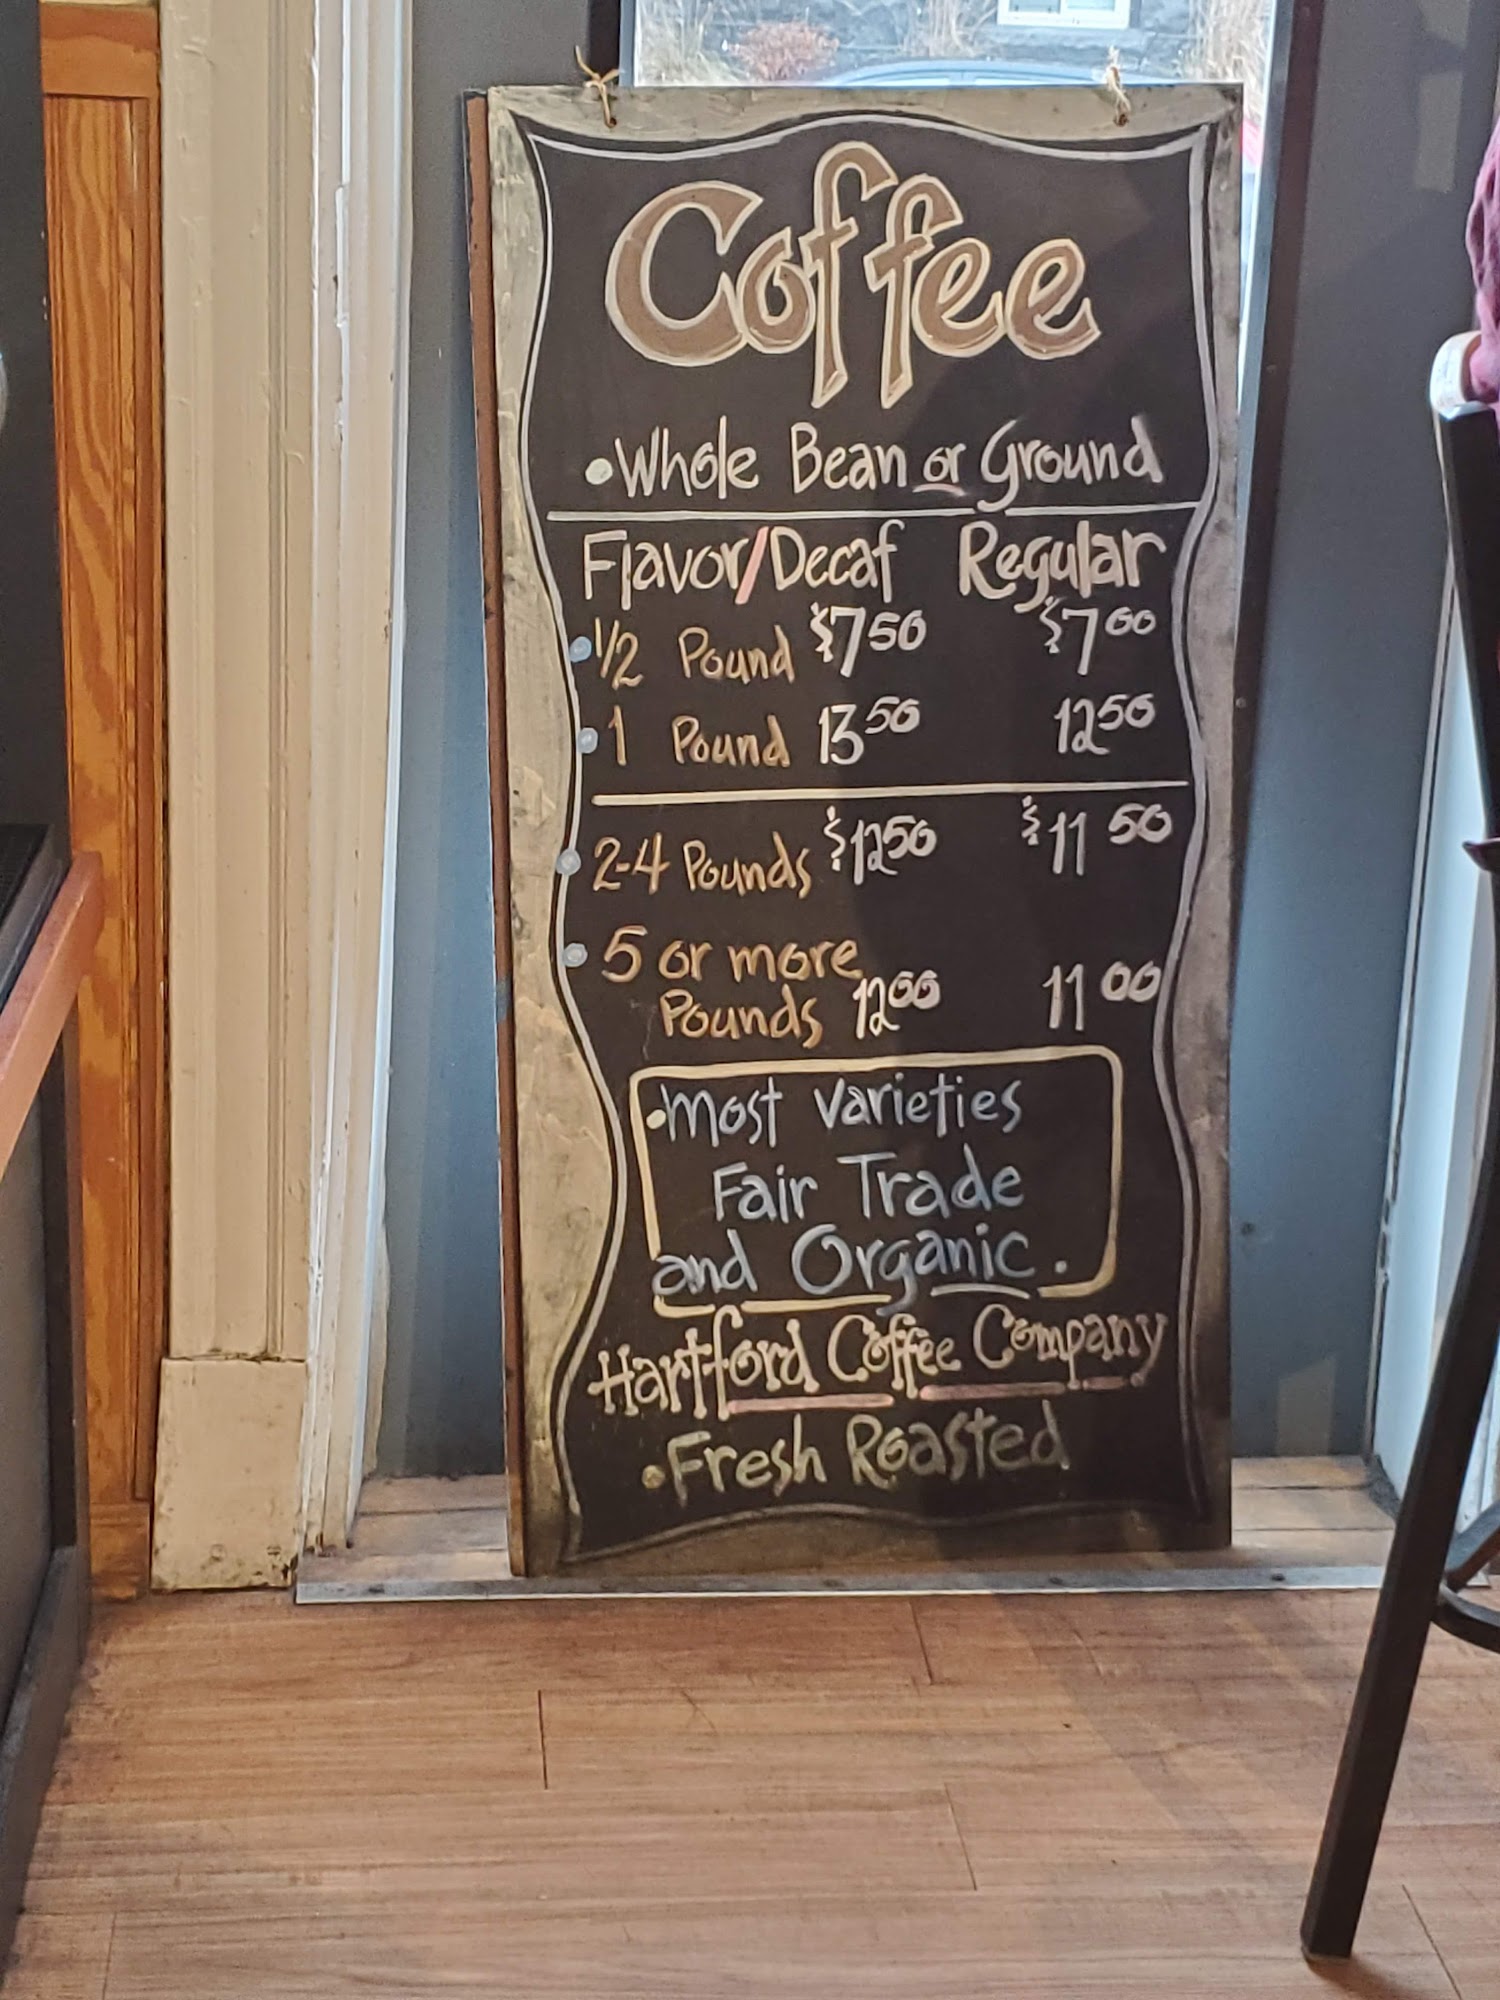 Coffee
• Whole Bean or Ground
Flavor/Decaf Regular
• 1/2 Pound $7 50 $7 00
• 1 Pound 13 50 12 50
• 2-4 Pounds $12 50 $11 50
• 5 or more
Pounds 12 00 11 00
• Most Varieties
Fair Trade
and Organic.
Hartford Coffee Company
• Fresh Roasted